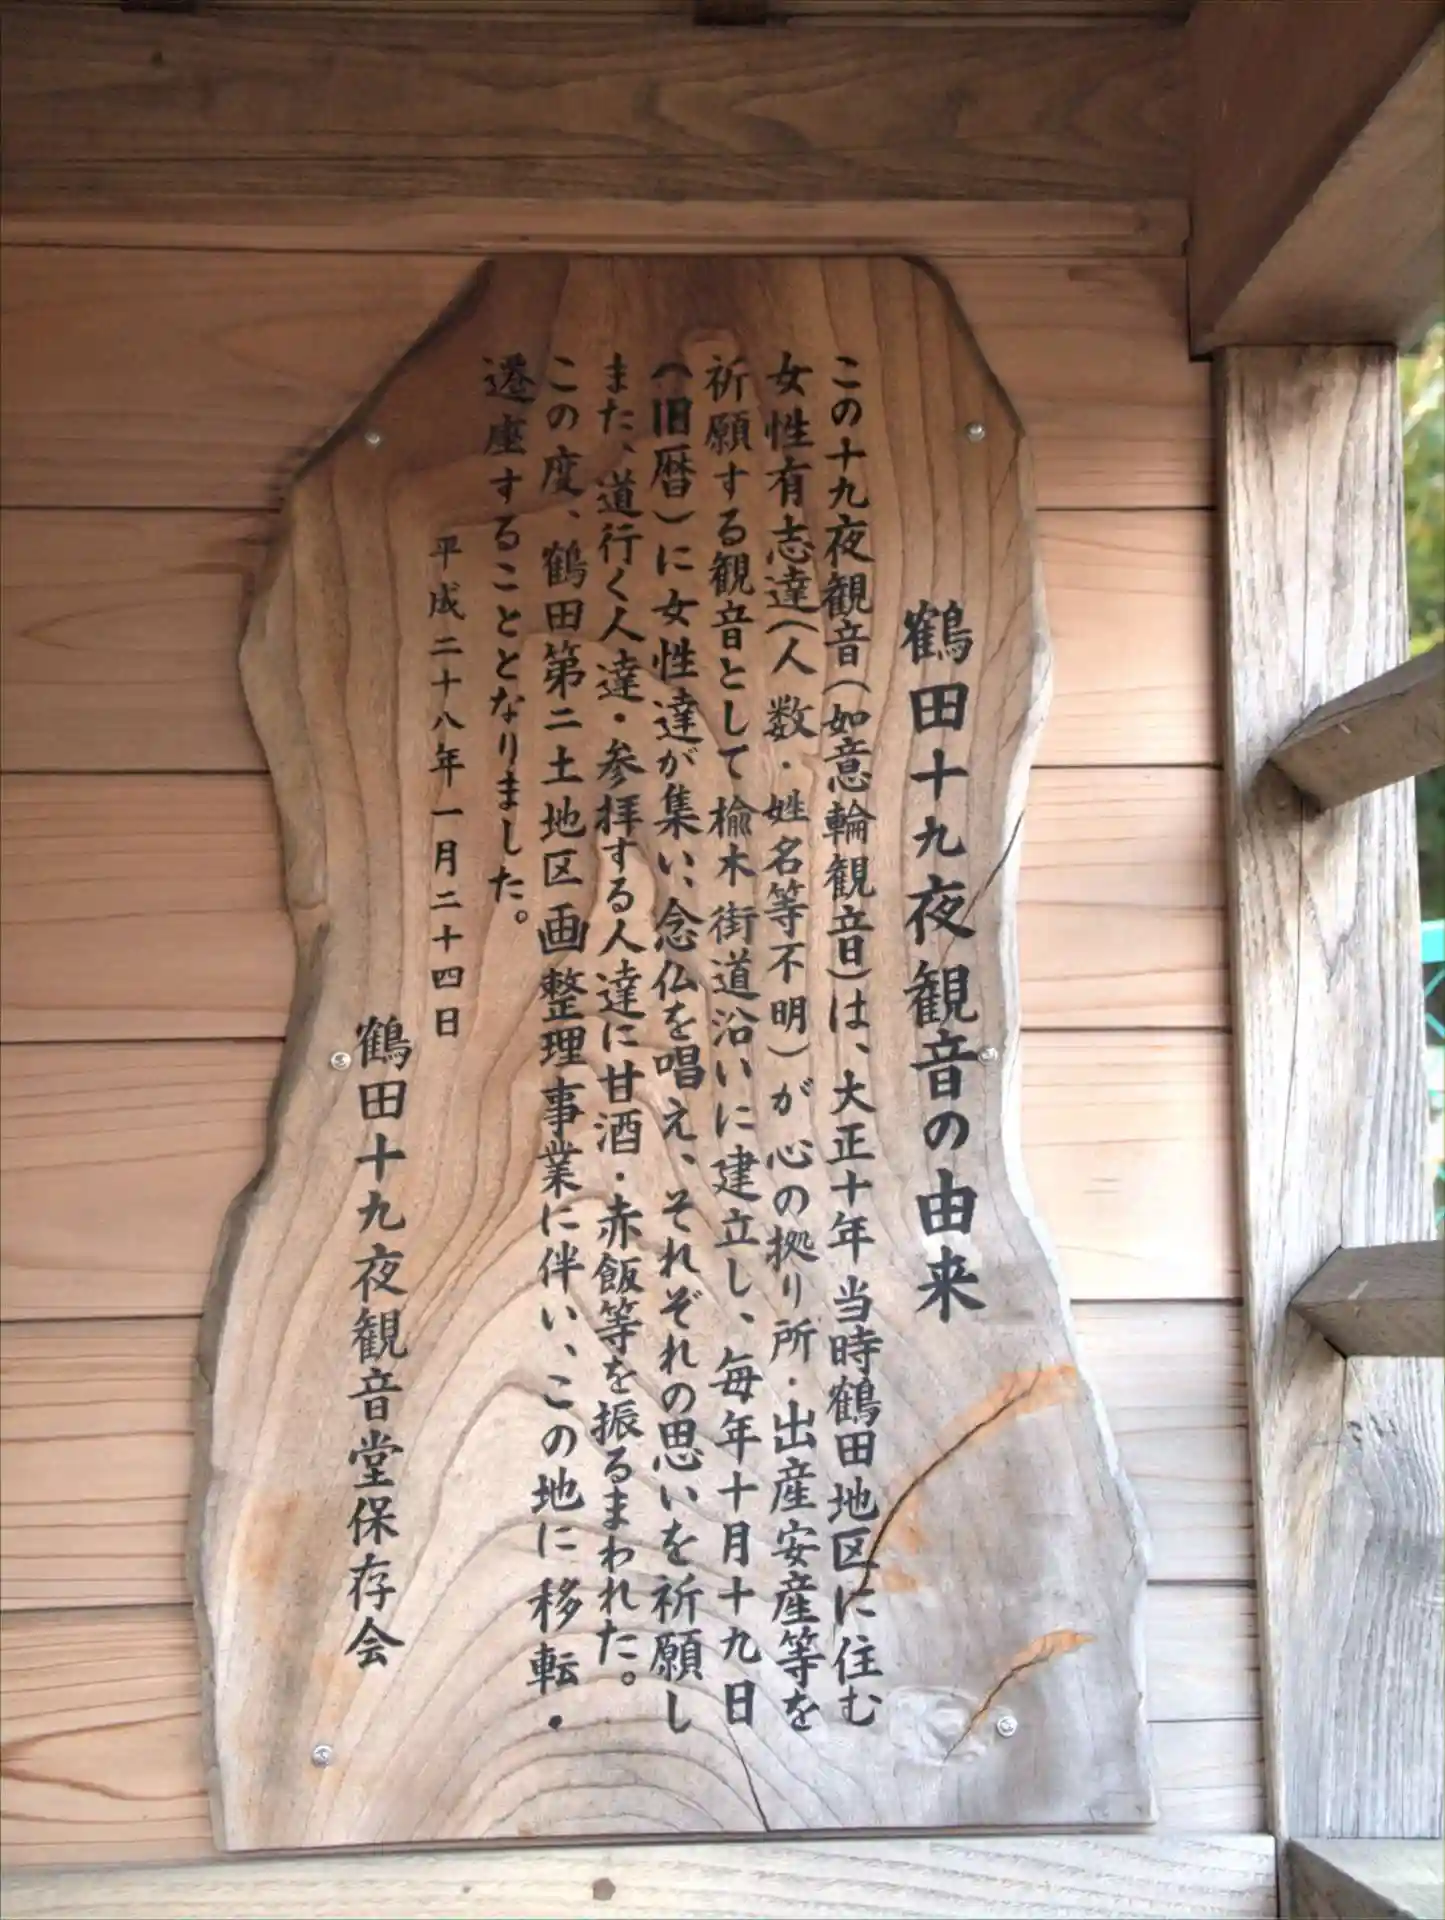 鶴田十九夜観音の由来
この十九夜観音(如意輪観音)は、大正十年当時鶴田地区に住む
女性有志達(人数・姓名等不明)が心の拠り所・出産安産等を
祈願する観音として楡木街道沿いに建立し、毎年十月十九日
(旧暦)に女性達が集い、念仏を唱え、それぞれの思いを祈願し
また、道行く人達・参拝する人達に甘酒・赤飯等を振るまわれた。
この度、鶴田第二土地区画整理事業に伴い、この地に移転・
遷座することとなりました。
平成二十八年一月二十四日
鶴田十九夜観音堂保存会